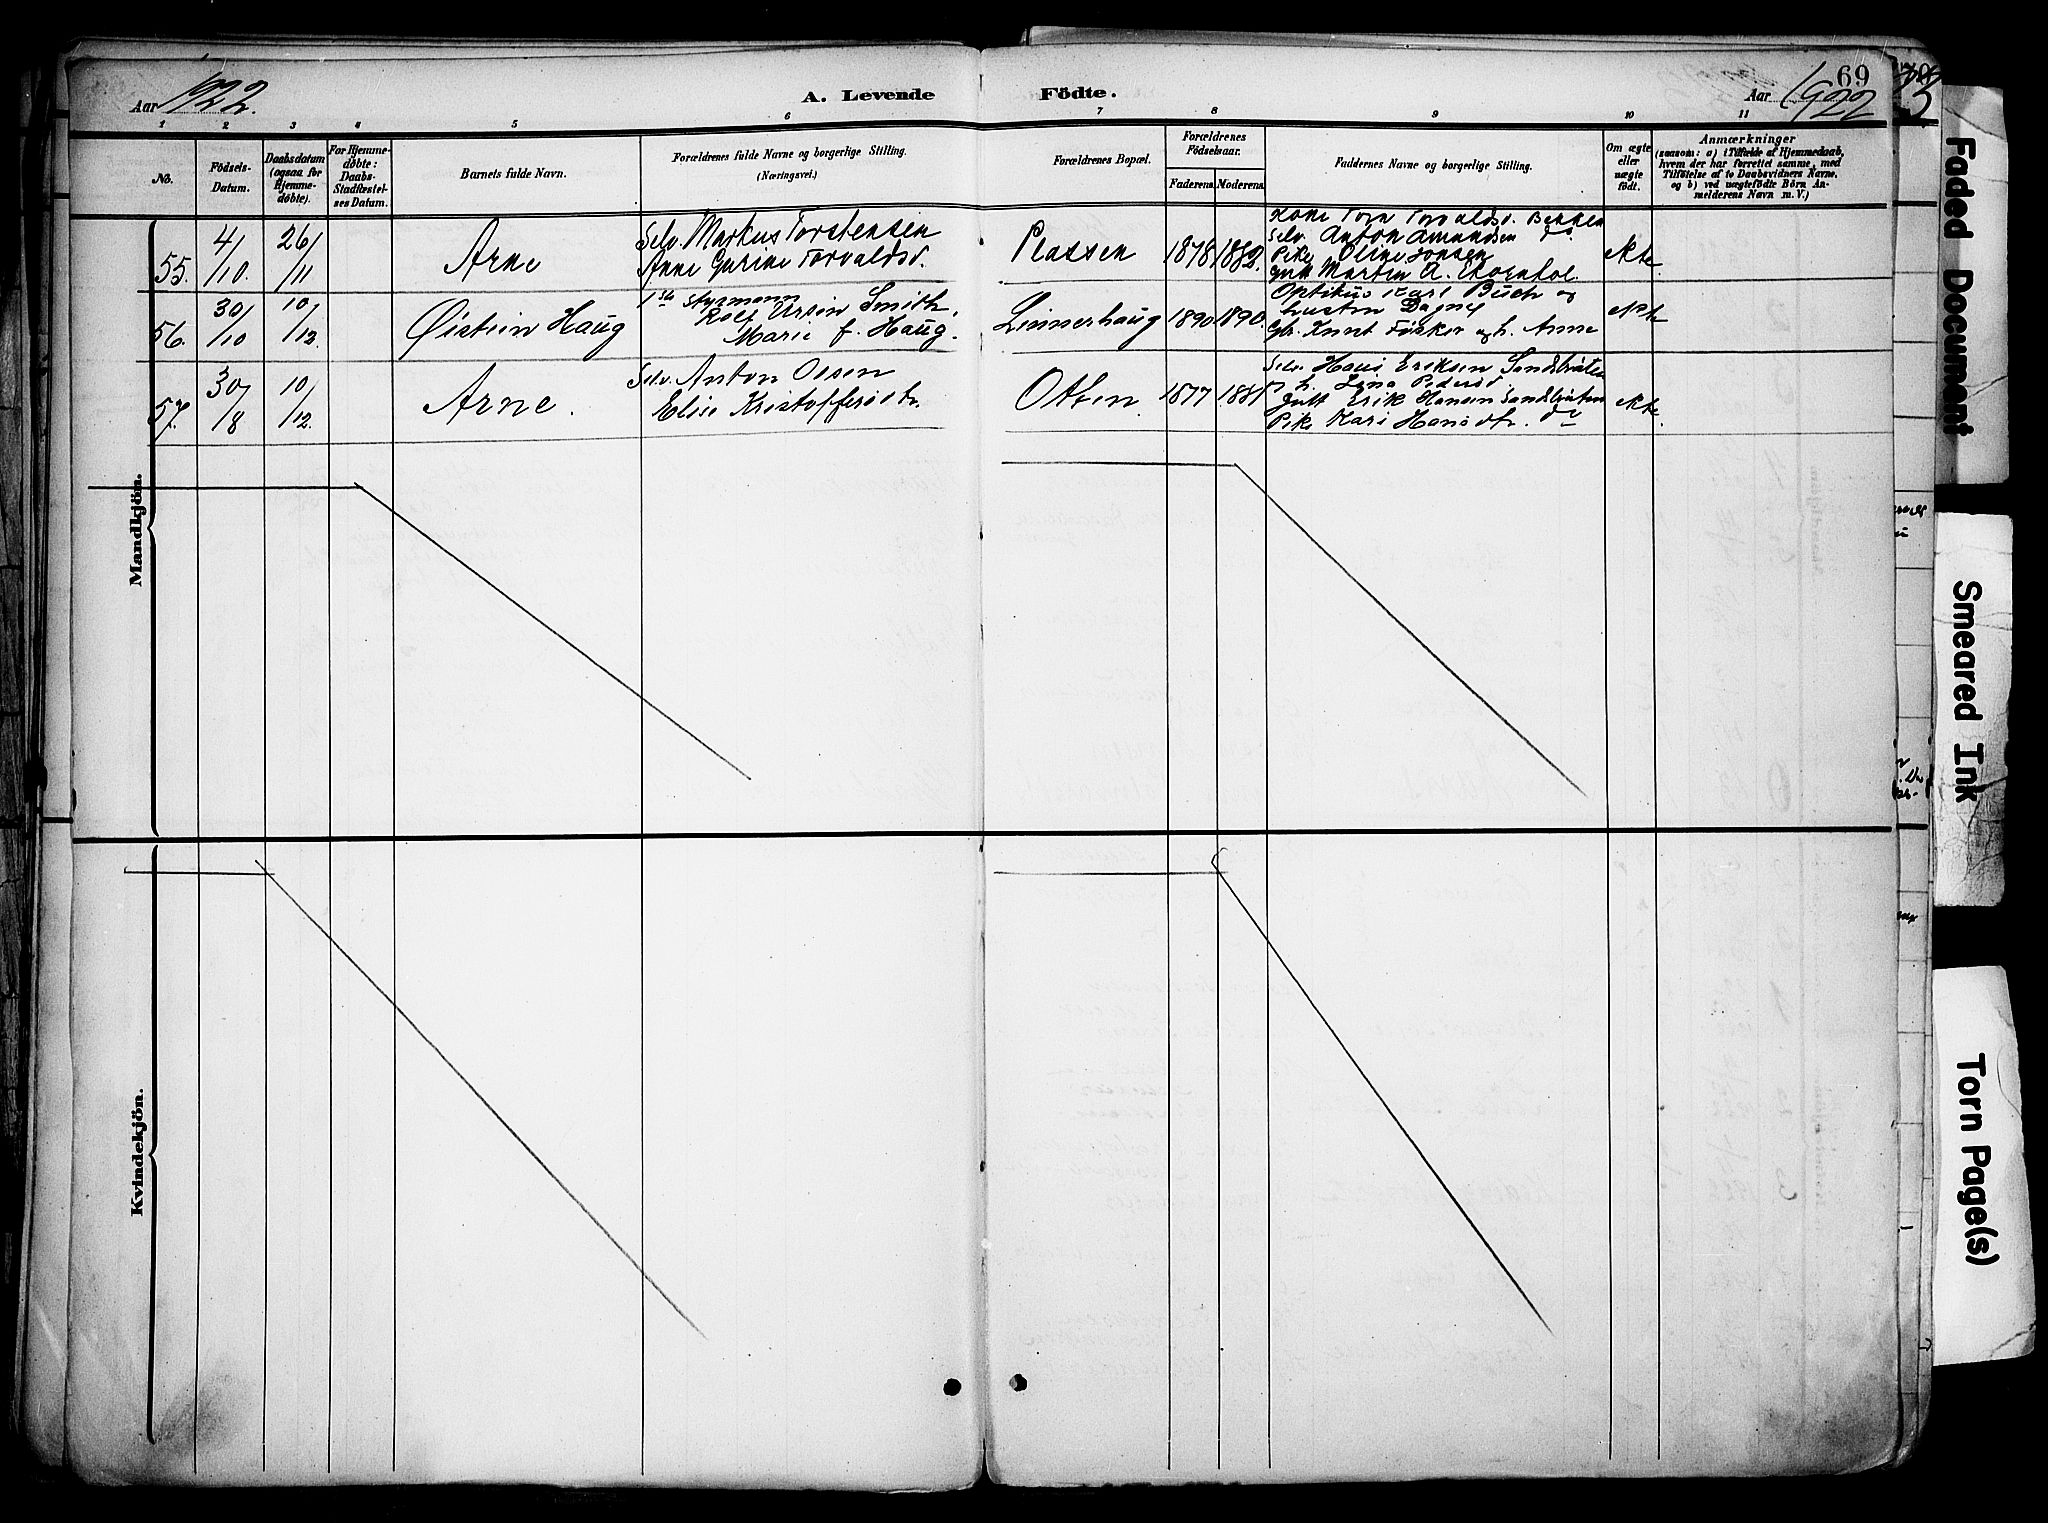 69
Aar 1922.
A. Levende
Födte.
Aar 1922
1 2 3 4 5 6 7 8 9 10 11
No.
Födsels-
Datum.
Daabsdatum
(ogsaa for
Hjemme-
döbte).
For Hjemme-
döbte:
Daabs-
Stadfæstel-
ses Datum.
Barnets fulde Navn.
Forældrenes fulde Navne og borgerlige Stilling.
(Næringsvei.)
Forældrenes Bopæl.
Forældrenes
Födselsaar.
Faderens.
Moderens.
Faddernes Navne og borgerlige Stilling.
Om ægte
eller
uægte
födt.
Anmærkninger
(saasom: a) i Tilfælde af Hjemmedaab,
hvem der har forrettet samme, med
Tilföielse af to Daabsvidners Navne,
og b) ved uægtefödte Börn An-
melderens Navn m.V.)
55. 4/10. 26/11
Arne
Selv. Markus Torstensen
Anne Gurine Torvaldsd.
Plassen
1878 1882.
Kone Torn Torvaldsd. Bekken
Selv. Anton Amundsen do.
Pike Oline Jonsen
Gutt Martin A.
Ekte.
56. 30/10 10/12.
Øistein Haug
1ste Styrmann
Rolf Ursin Smith,
Marie f. Haug.
Linnerhaug
1890 1890.
Optikus Karl Busch og
hustru Dagny
Gbr. Knut Fosker og h. Anne
Ekte
57. 30/8 10/12.
Arne.
Selv. Anton Olsen
Elise Kristoffersdtr.
Otten
1877 1881
Selv. Hans Eriksen Sandbråten
og h. Lina Pedersd
Gutt Erik Hansen Sandbråten
Pike Kari Hansdtr. do
Ekte.
Mandkjön.
Kvindekjön.
Faded Document
Smeared Ink
Torn Page(s)